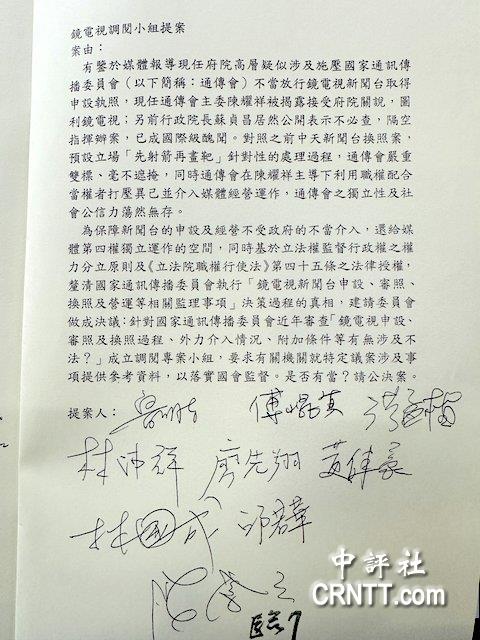 鏡電視調閱小組提案
案由：
有鑒於媒體報導現任府院高層疑似涉及施壓國家通訊傳
播委員會（以下簡稱：通傳會）不當放行鏡電視新聞台取得
申設執照，現任通傳會主委陳耀祥被揭露接受府院關說，圖
利鏡電視；另前行政院長蘇貞昌居然公開表示不必查，隔空
指揮辦案，已成國際級醜聞。對照之前中天新聞台換照案，
預設立場「先射箭再畫靶」針對性的處理過程，通傳會嚴重
雙標、毫不遮掩，同時通傳會在陳耀祥主導下利用職權配合
當權者打壓異己並介入媒體經營運作，通傳會之獨立性及社
會公信力蕩然無存。
為保障新聞台的申設及經營不受政府的不當介入，還給媒
體第四權獨立運作的空間，同時基於立法權監督行政權之權
力分立原則及《立法院職權行使法》第四十五條之法律授權，
釐清國家通訊傳播委員會執行「鏡電視新聞台申設、審照、
換照及營運等相關監理事項」決策過程的真相，建請委員會
做成決議：針對國家通訊傳播委員會近年審查「鏡電視申設、
審照及換照過程、外力介入情況、附加條件等有無涉及不
法？」成立調閱專案小組，要求有關機關就特定議案涉及事
項提供參考資料，以落實國會監督。是否有當？請公決案。
提案人：傅崐萁 洪孟楷
林沛祥 廖先翔 黃健豪
林國成 邱若華
中評社
CRNTT.com